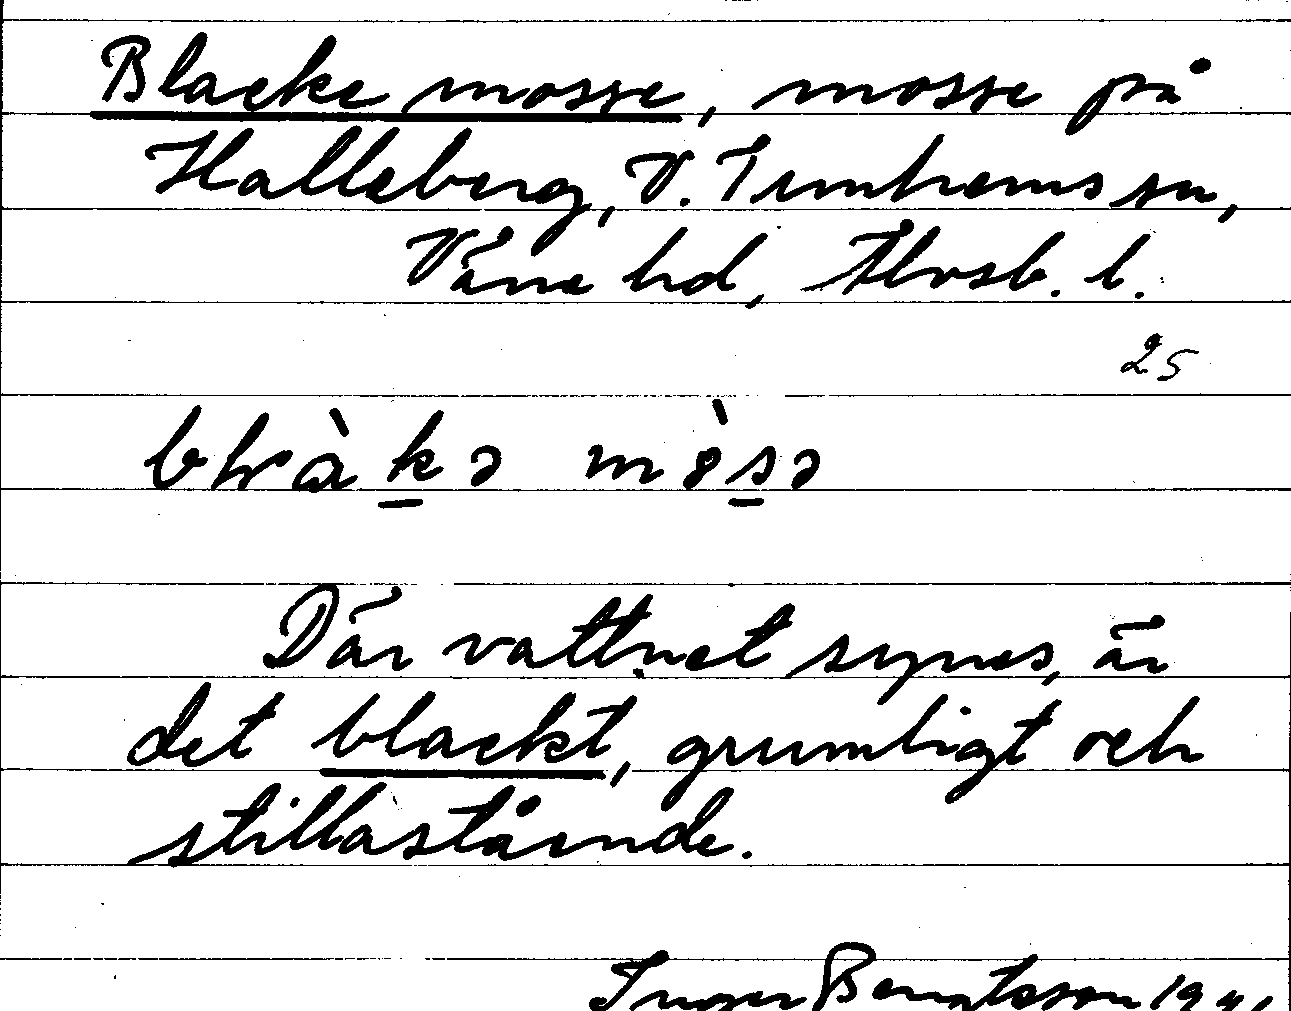 Blacke mosse, mosse på
Halleberg, V. Tunhems sn,
Väne hd, Älvsb. l.
25
Där vattnet synes, är
det blackt, grumligt och
stillastående.
Inger Bengtsson